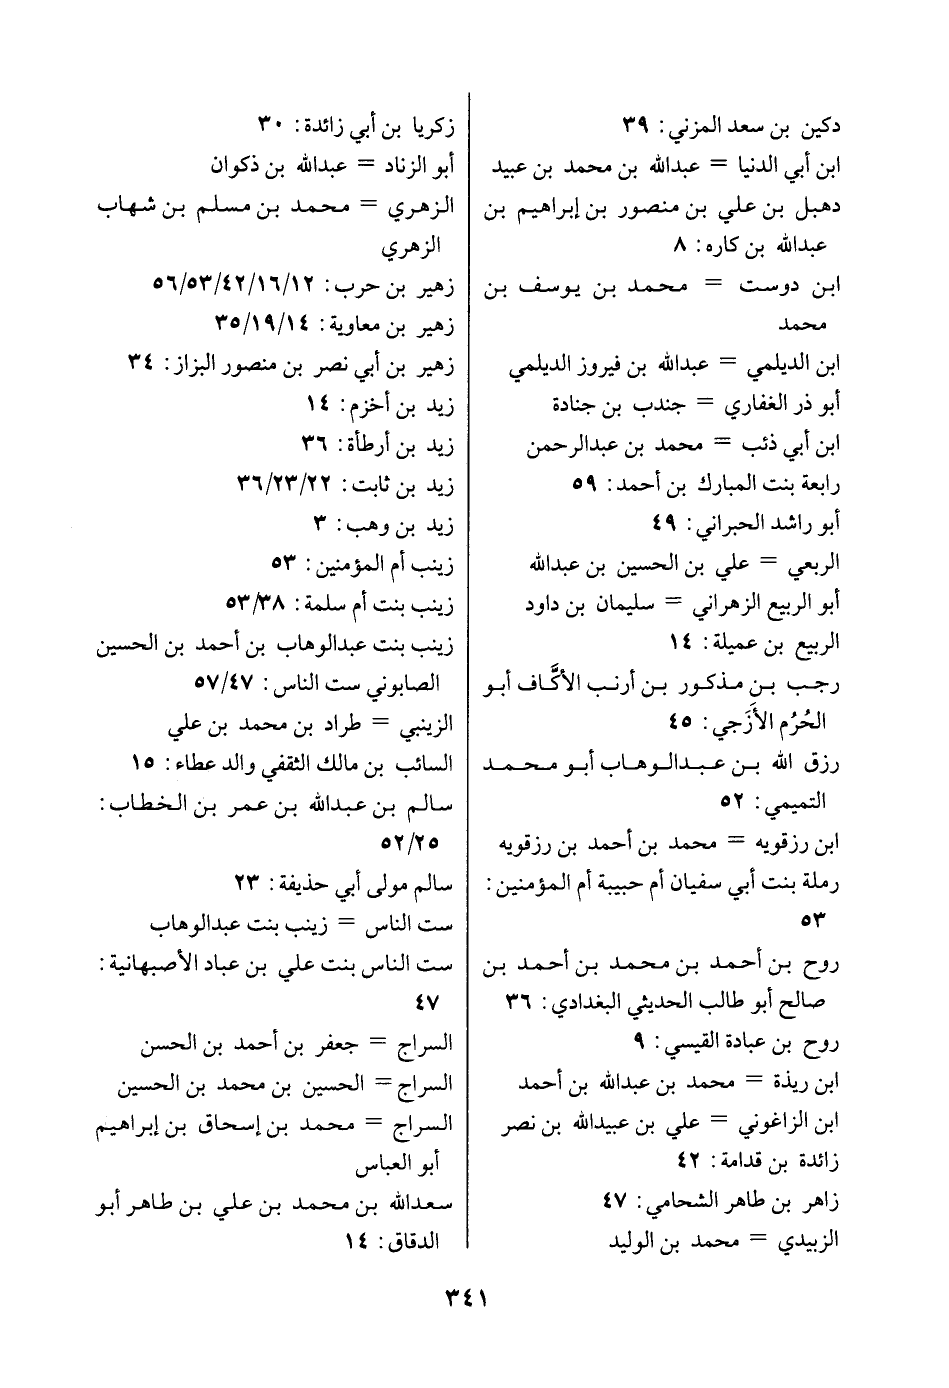 دكين بن سعد المزني: ٣٩
ابن أبي الدنيا = عبدالله بن محمد بن عبيد
دهبل بن علي بن منصور بن إبراهيم بن
عبدالله بن كاره: ٨
ابن دوست = محمد بن يوسف بن
محمد
ابن الديلمي = عبدالله بن فيروز الديلمي
أبو ذر الغفاري = جندب بن جنادة
ابن أبي ذئب = محمد بن عبدالرحمن
رابعة بنت المبارك بن أحمد: ٥٩
أبو راشد الحبراني: ٤٩
الربعي = علي بن الحسين بن عبدالله
أبو الربيع الزهراني = سليمان بن داود
الربيع بن عميلة: ١٤
رجب بن مذكور بن أرنب الأكَّاف أبو
الحُرُم الأَزَجي: ٤٥
رزق الله بن عبدالوهاب أبو محمد
التميمي: ٥٢
ابن رزقويه = محمد بن أحمد بن رزقويه
رملة بنت أبي سفيان أم حبيبة أم المؤمنين:
٥٣
روح بن أحمد بن محمد بن أحمد بن
صالح أبو طالب الحديثي البغدادي: ٣٦
روح بن عبادة القيسي: ٩
ابن ريذة = محمد بن عبدالله بن أحمد
ابن الزاغوني = علي بن عبيدالله بن نصر
زائدة بن قدامة: ٤٢
زاهر بن طاهر الشحامي: ٤٧
الزبيدي = محمد بن الوليد
زكريا بن أبي زائدة: ٣٠
أبو الزناد = عبدالله بن ذكوان
الزهري = محمد بن مسلم بن شهاب
الزهري
زهير بن حرب: ١٢/١٦/٤٢/٥٣/٥٦
زهير بن معاوية: ١٤/١٩/٣٥
زهير بن أبي نصر بن منصور البزاز: ٣٤
زيد بن أخزم: ١٤
زيد بن أرطأة: ٣٦
زيد بن ثابت: ٢٢/٢٣/٣٦
زيد بن وهب: ٣
زينب أم المؤمنين: ٥٣
زينب بنت أم سلمة: ٣٨/٥٣
زينب بنت عبدالوهاب بن أحمد بن الحسين
الصابوني ست الناس: ٤٧/٥٧
الزينبي = طراد بن محمد بن علي
السائب بن مالك الثقفي والد عطاء: ١٥
سالم بن عبدالله بن عمر بن الخطاب:
٢٥/٥٢
سالم مولى أبي حذيفة: ٢٣
ست الناس = زينب بنت عبدالوهاب
ست الناس بنت علي بن عباد الأصبهانية:
٤٧
السراج = جعفر بن أحمد بن الحسن
السراج = الحسين بن محمد بن الحسين
السراج = محمد بن إسحاق بن إبراهيم
أبو العباس
سعدالله بن محمد بن علي بن طاهر أبو
الدقاق: ١٤
٣٤١